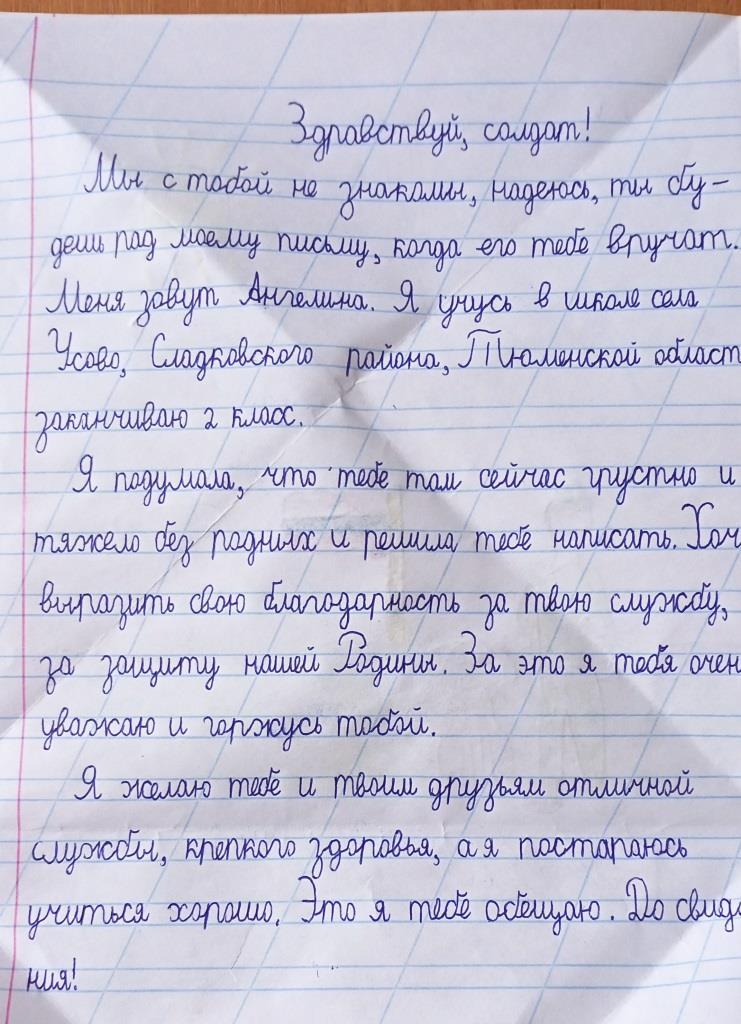 Здравствуй, солдат!
Мы с тобой не знакомы, надеюсь, ты бу-
дешь рад моему письму, когда его тебе вручат.
Меня зовут Ангелина. Я учусь в школе села
Усово, Сладковского района, Тюменской област
заканчиваю 2 класс.
Я подумала, что тебе там сейчас грустно и
тяжело без родных и решила тебе написать. Хоч
выразить свою благодарность за твою службу,
за защиту нашей Родины. За это я тебя очен
уважаю и горжусь тобой.
Я желаю тебе и твоим друзьям отличной
службы, крепкого здоровья, а я постараюсь
учиться хорошо. Это я тебе обещаю. До свида
ния!